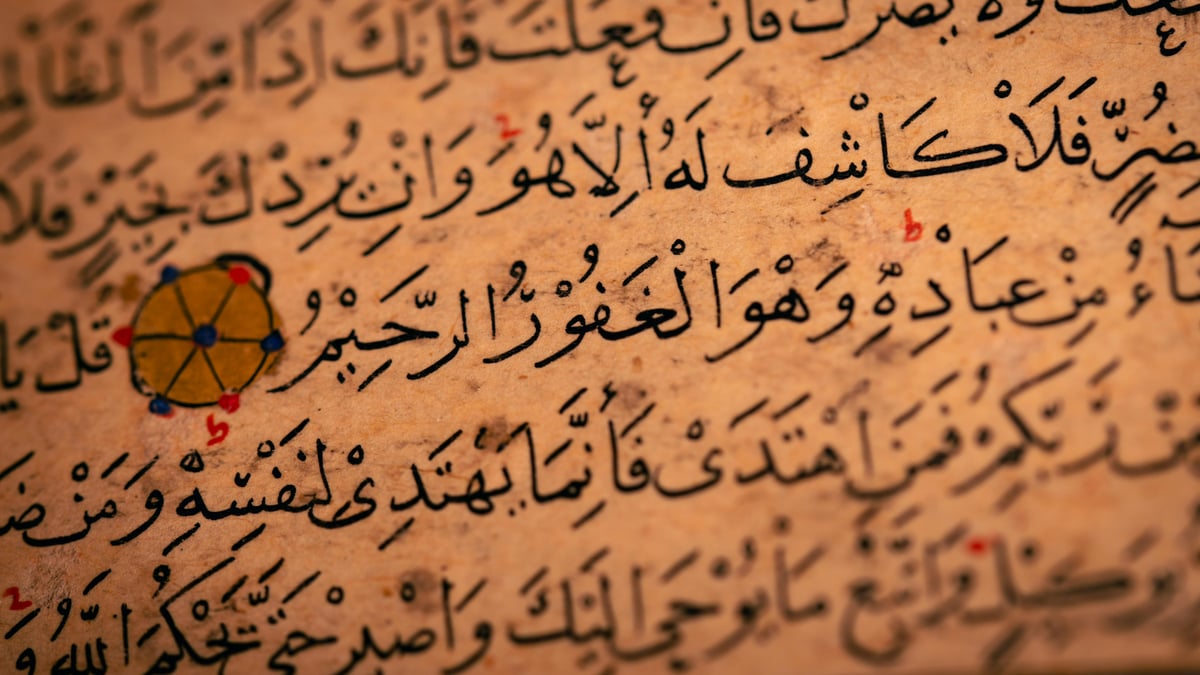 يَضُرُّكَ فَاِنْ فَعَلْتَ فَاِنَّكَ اِذًا مِنَ الظَّالِمِ
بِضُرٍّ فَلَا كَاشِفَ لَهُ اِلَّا هُوَ وَاِنْ يُرِدْكَ بِخَيْرٍ فَلَا
مِنْ عِبَادِهِ وَهُوَ الْغَفُورُ الرَّحِيمُ قُلْ يَا
مِنْ رَبِّكُمْ فَمَنِ اهْتَدَىْ فَاِنَّمَا يَهْتَدِىْ لِنَفْسِهِ وَمَنْ ضَ
وَاتَّبِعْ مَا يُوحَى اِلَيْكَ وَاصْبِرْ حَتَّى يَحْكُمَ اللّٰهُ وَ